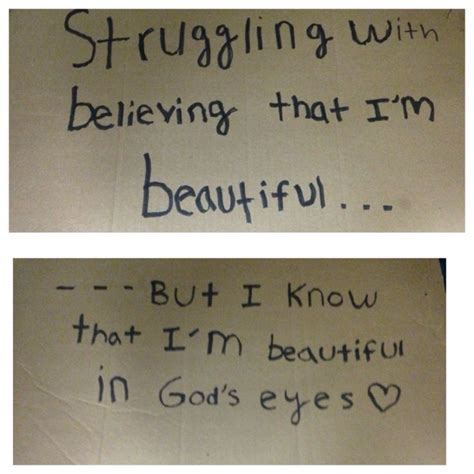 Struggling with
believing that I'm
beautiful...
--- But I know
that I'm beautiful
in God's eyes ♡